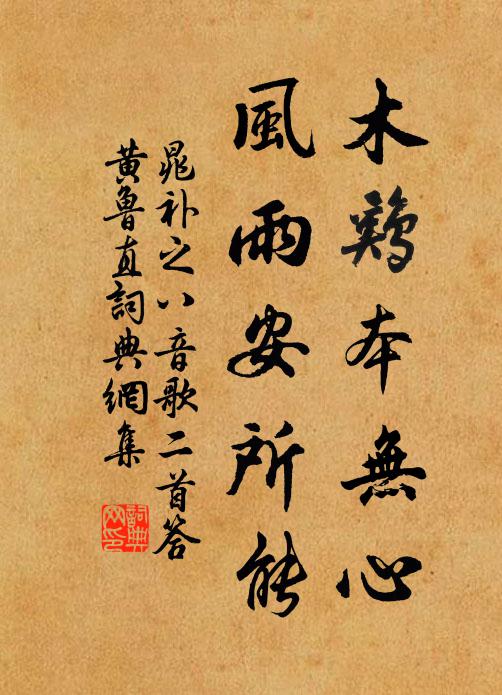 木鷄本無心
風雨安所能
晁补之八音歌二首答
黄魯直詞典網集
詞典網印